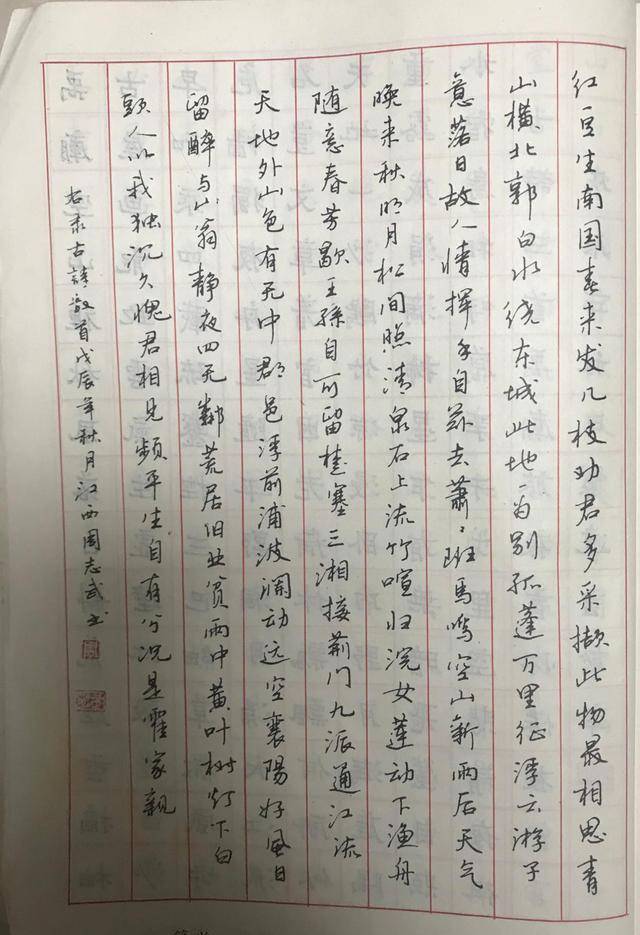 红豆生南国春来发几枝劝君多采撷此物最相思青
山横北郭白水绕东城此地一为别孤蓬万里征浮云游子
意落日故人情挥手自兹去萧々班马鸣空山新雨后天气
晚来秋明月松间照清泉石上流竹喧归浣女莲动下渔舟
随意春芳歇王孫自可留楚塞三湘接荆门九派通江流
天地外山色有无中郡邑浮前浦波澜动远空襄陽好风日
留醉与山翁静夜四无鄰荒居旧业贫雨中黄叶树灯下白
頭人以我独沉久愧君相见频平生自有分况是霍家親
右录古詩数首戊辰年秋月江西周志武书